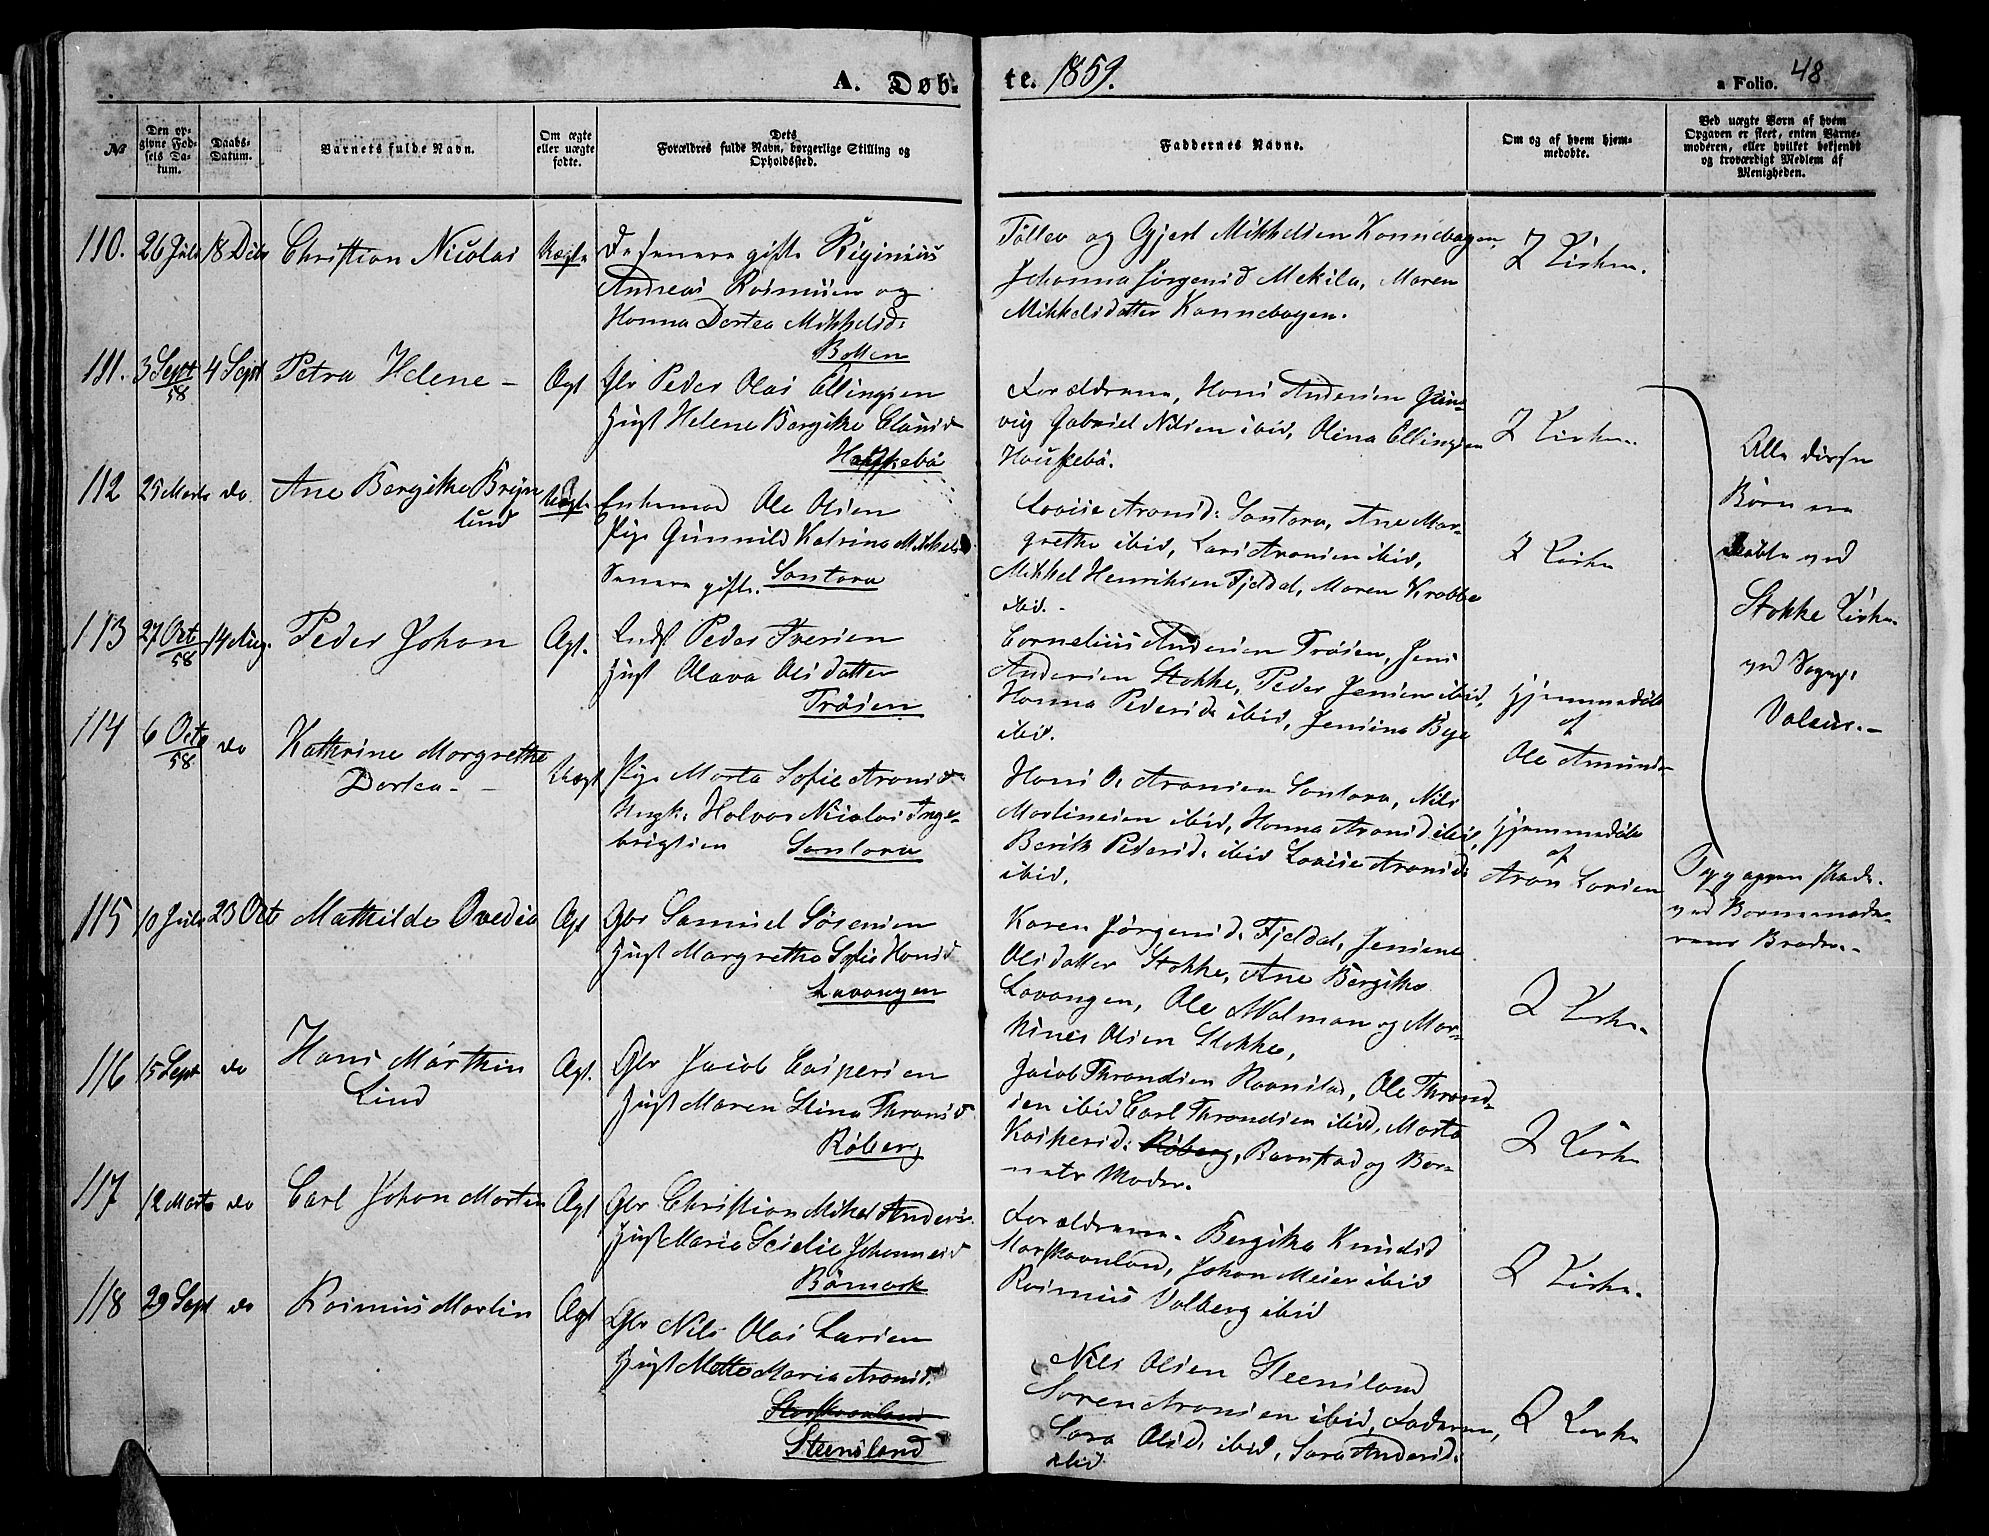 A. Døb-
te. 1859.
a Folio. 48
№
Den op-
givne Fød-
sels Da-
tum.
Daabs-
Datum.
Barnets fulde Navn.
Om ægte
eller uægte
fødte.
Dets
Forældres fulde Navn, borgerlige Stilling og
Opholdssted.
Faddernes Navne.
Om og af hvem hjem-
medøbte.
Ved uægte Børn af hvem
Opgaven er skeet, enten Barne-
moderen, eller hvilket bekjendt
og troværdigt Medlem af
Menigheden.
110. 26 Juli 18 Decbr Christian Nicolai Uægte
De senere gifte
Andreas Rasmusen og
Hanna Dortea Mikkelsd:
Botten
Tollev og Gjert Mikkelsen Kannebogen,
Johanna Jørgensd Mekila, Maren
Mikkelsdatter Kannebogen.
I Kirken.
111. 3 Sept 58 4 Sept Petra Helene - Ægt
Gbr Peder Olai Ellingsen
Hust Helene Bergitte Clausd
Houkebø
Forældrene, Hans Andersen
Gabriel Nilsen ibid, Olina Ellingsen
Houkebø.
I Kirken.
112 25 Marts do. Ane Bergitte Bryn
lund Uægt.
Enkemand Ole Olsen
Pige Gunnild Katrina Mikkelsd.
Senere gifte. Santora
Lovise Aronsd: Santora, Ane Mar-
grethe ibid, Lars Aronsen ibid,
Mikkel Henriksen Fjeldal, Maren Krabbe
ibid. -
I Kirken
113 27 Oct 58 14 Aug. Peder Johan Ægt.
Inds Peder Iversen
Hust Olava Olsdatter
Trøsen
Cornelius Andersen Trøsen, Jens
Andersen Stokke, Peder Jensen ibid,
Hanna Pedersd: ibid, Jensina Bye
ibid.
Hjemmedøbt
af
Ole Amunds-
114 6 Octb 58 do Kathrine Margrethe
Dortea - Uægt
Pige Marta Sofie Aronsd.
Ungk: Halvor Nicolai Inge-
brigtsen Santora
Hans O. Aronsen Santora, Nils
Martinsen ibid, Hanna Aronsd ibid,
Berith Pedersd: ibid Lovise Aronsd:
ibid.
Hjemmedøbt
af
Aron Larsen
Alle disse
Børn ere
døbte ved
Stokke Kirke
ved Sogne
115 10 Juli 23 Oct Mathilde Ovedia Ægt
Gbr Samuel Sørensen
Hust Margrethe Sofie Hansd
Lavangen
Karen Jørgensd. Fjeldal, Jensine
Olsdatter Stokke, Ane Bergitte
Lavangen, Ole Malman og Mar-
kines Olsen Stokke,
I Kirke.
116 15 Sept do Hans Marthin
Lind Ægt.
Gbr Jacob Caspersen
Hust Maren Stina Thronsd
Røberg
Jacob Throndsen Ravnstad, Ole Thrond-
sen ibid Carl Throndsen ibid, Marta
Kaspersd: Røberg, Ravnstad og Bar-
nets Moder.
I Kirke
117 12 Marts do Carl Johan Martin Ægt
Gbr Christian Mikal Anders.
Hust Maria Johannesd
Bømark
Forældrene. Bergitta Knudsd
Johan Meier ibid
Rasmus Valberg ibid
I Kirke.
118 29 Sept do Rasmus Martin Ægt
Gbr Nils Olai Larsen
Hust Mette Maria Aronsd.
Steensland
Nils Olsen Steensland
Soren Aronsen ibid, Faderen,
Sara Olsd: ibid, Sara Andersd:
ibid
I Kirke